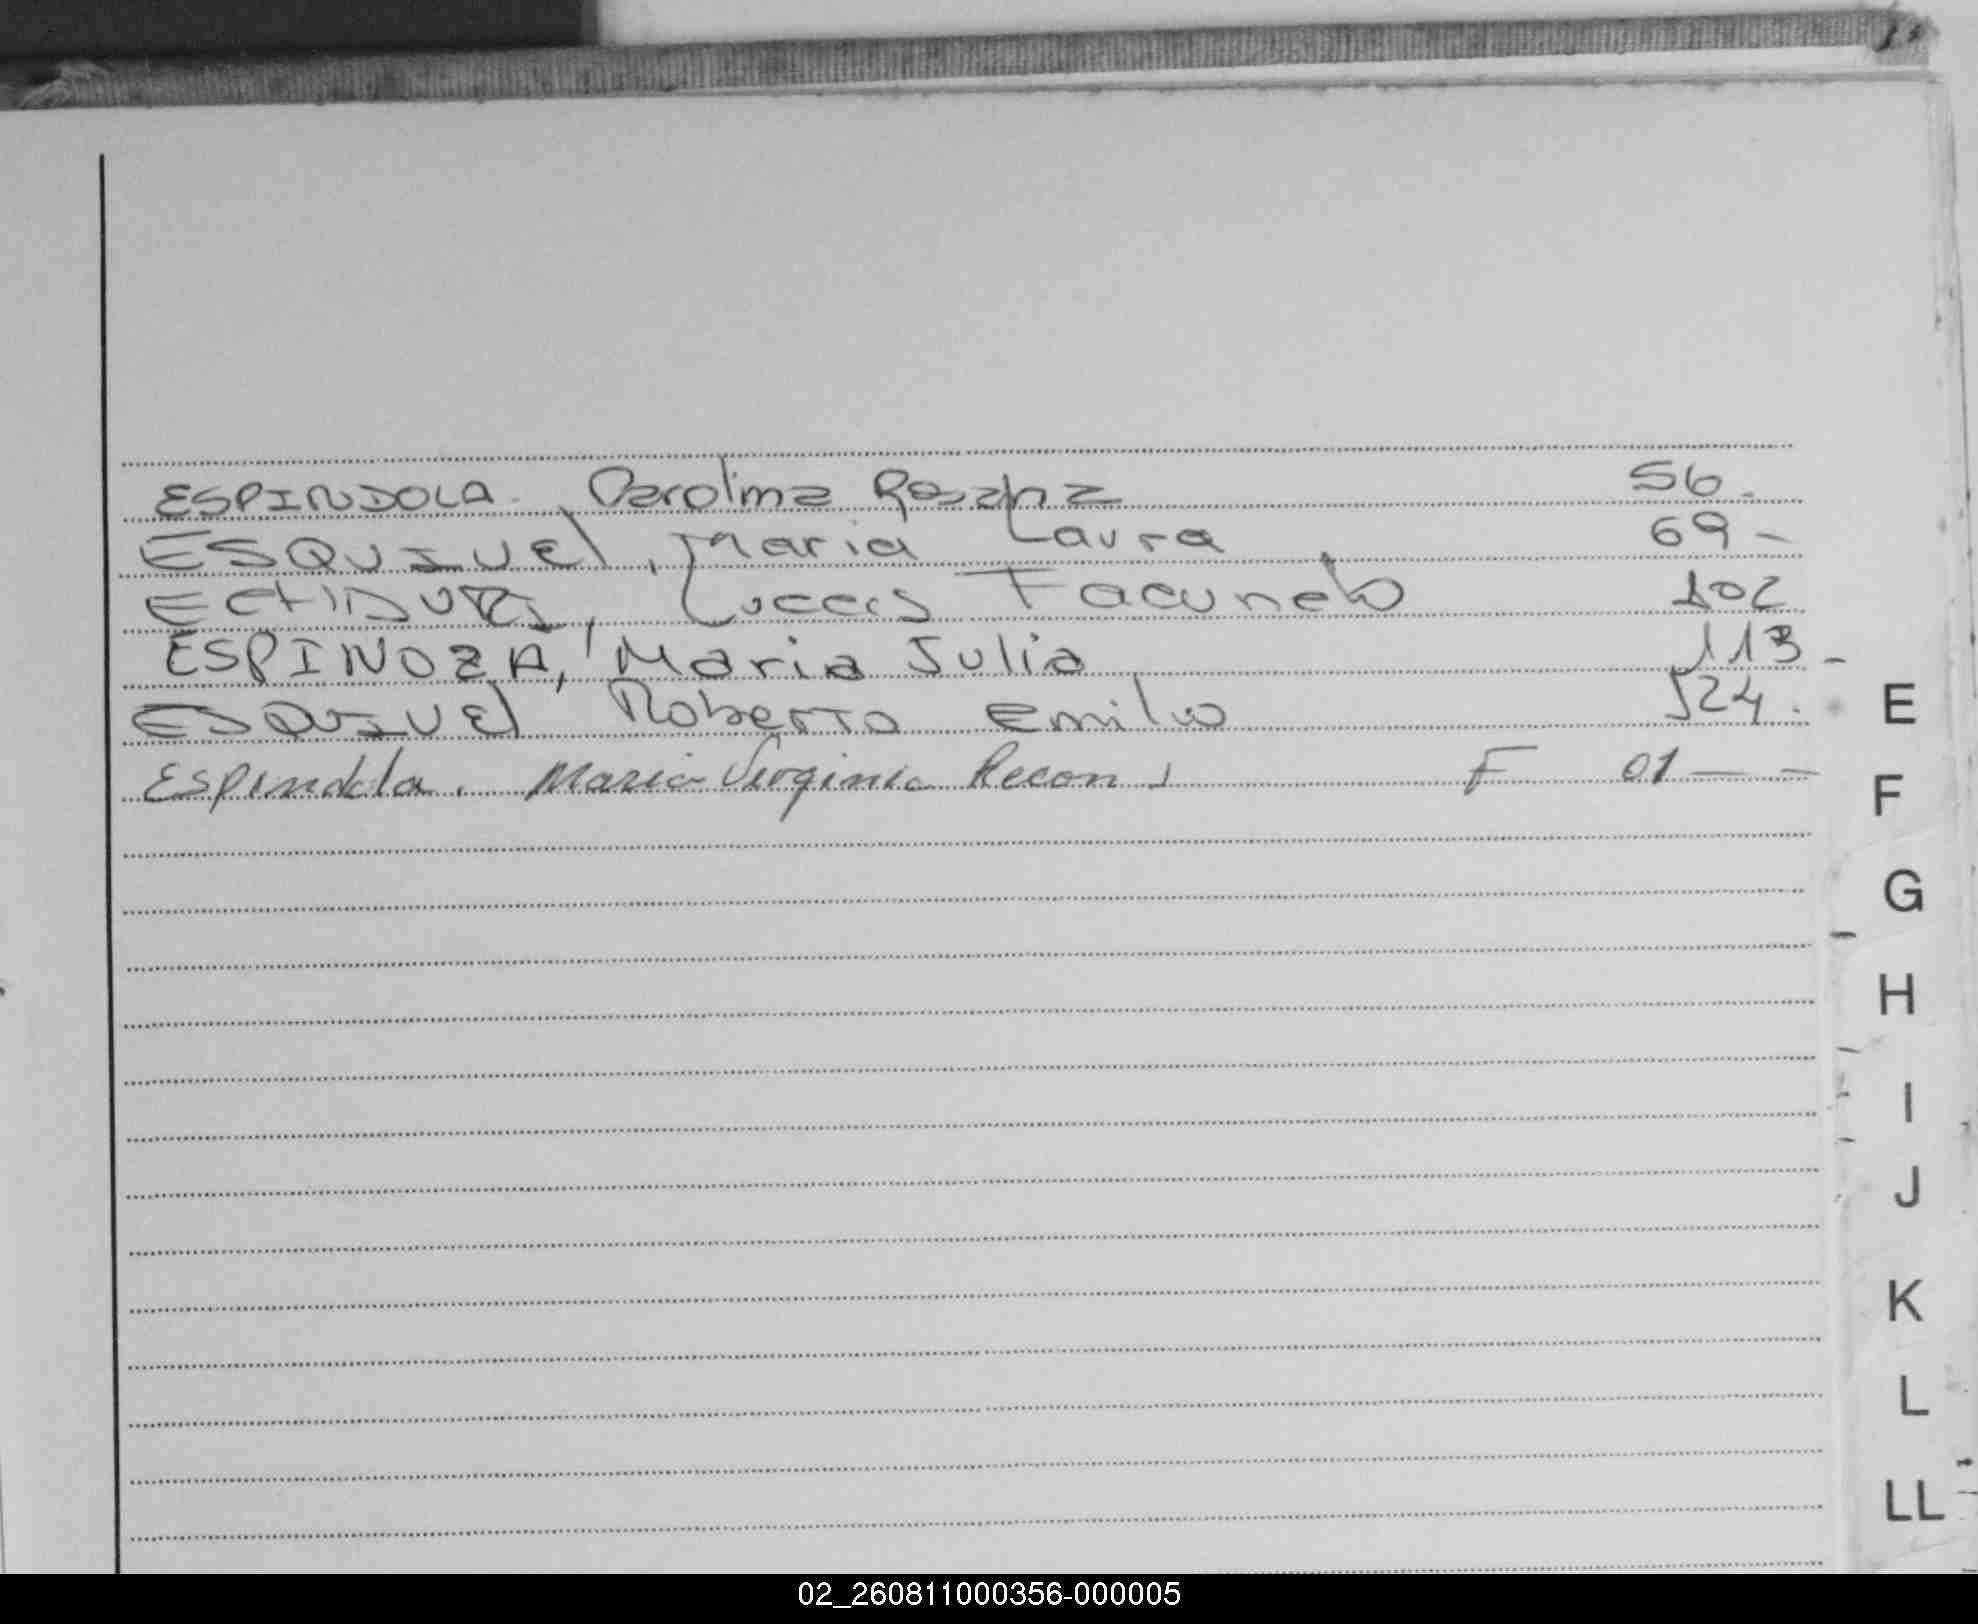 ESPINDOLA. Carolina Rosana 56.
ESQUIVEl, Maria Laura 69-
Luccas Facundo 102
ESPINOZA, Maria Julia 113-
ESQUIVEl Roberto Emilio 124.
Espindola. Maria Virginia Recon F 01--
E
F
G
H
I
J
K
L
LL
02_260811000356-000005